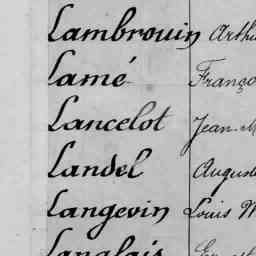 Lambrouin Arthu
Lamé Franço
Lancelot Jean M
Landel Auguste
Langevin Louis M
Langlais Ernest